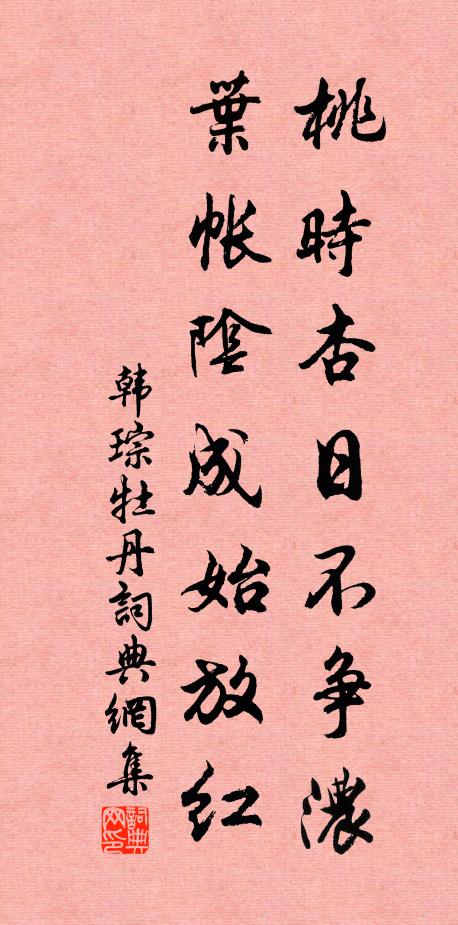 桃時杏日不争濃
葉帳陰成始放紅
韩琮牡丹詞典網集
詞典网印